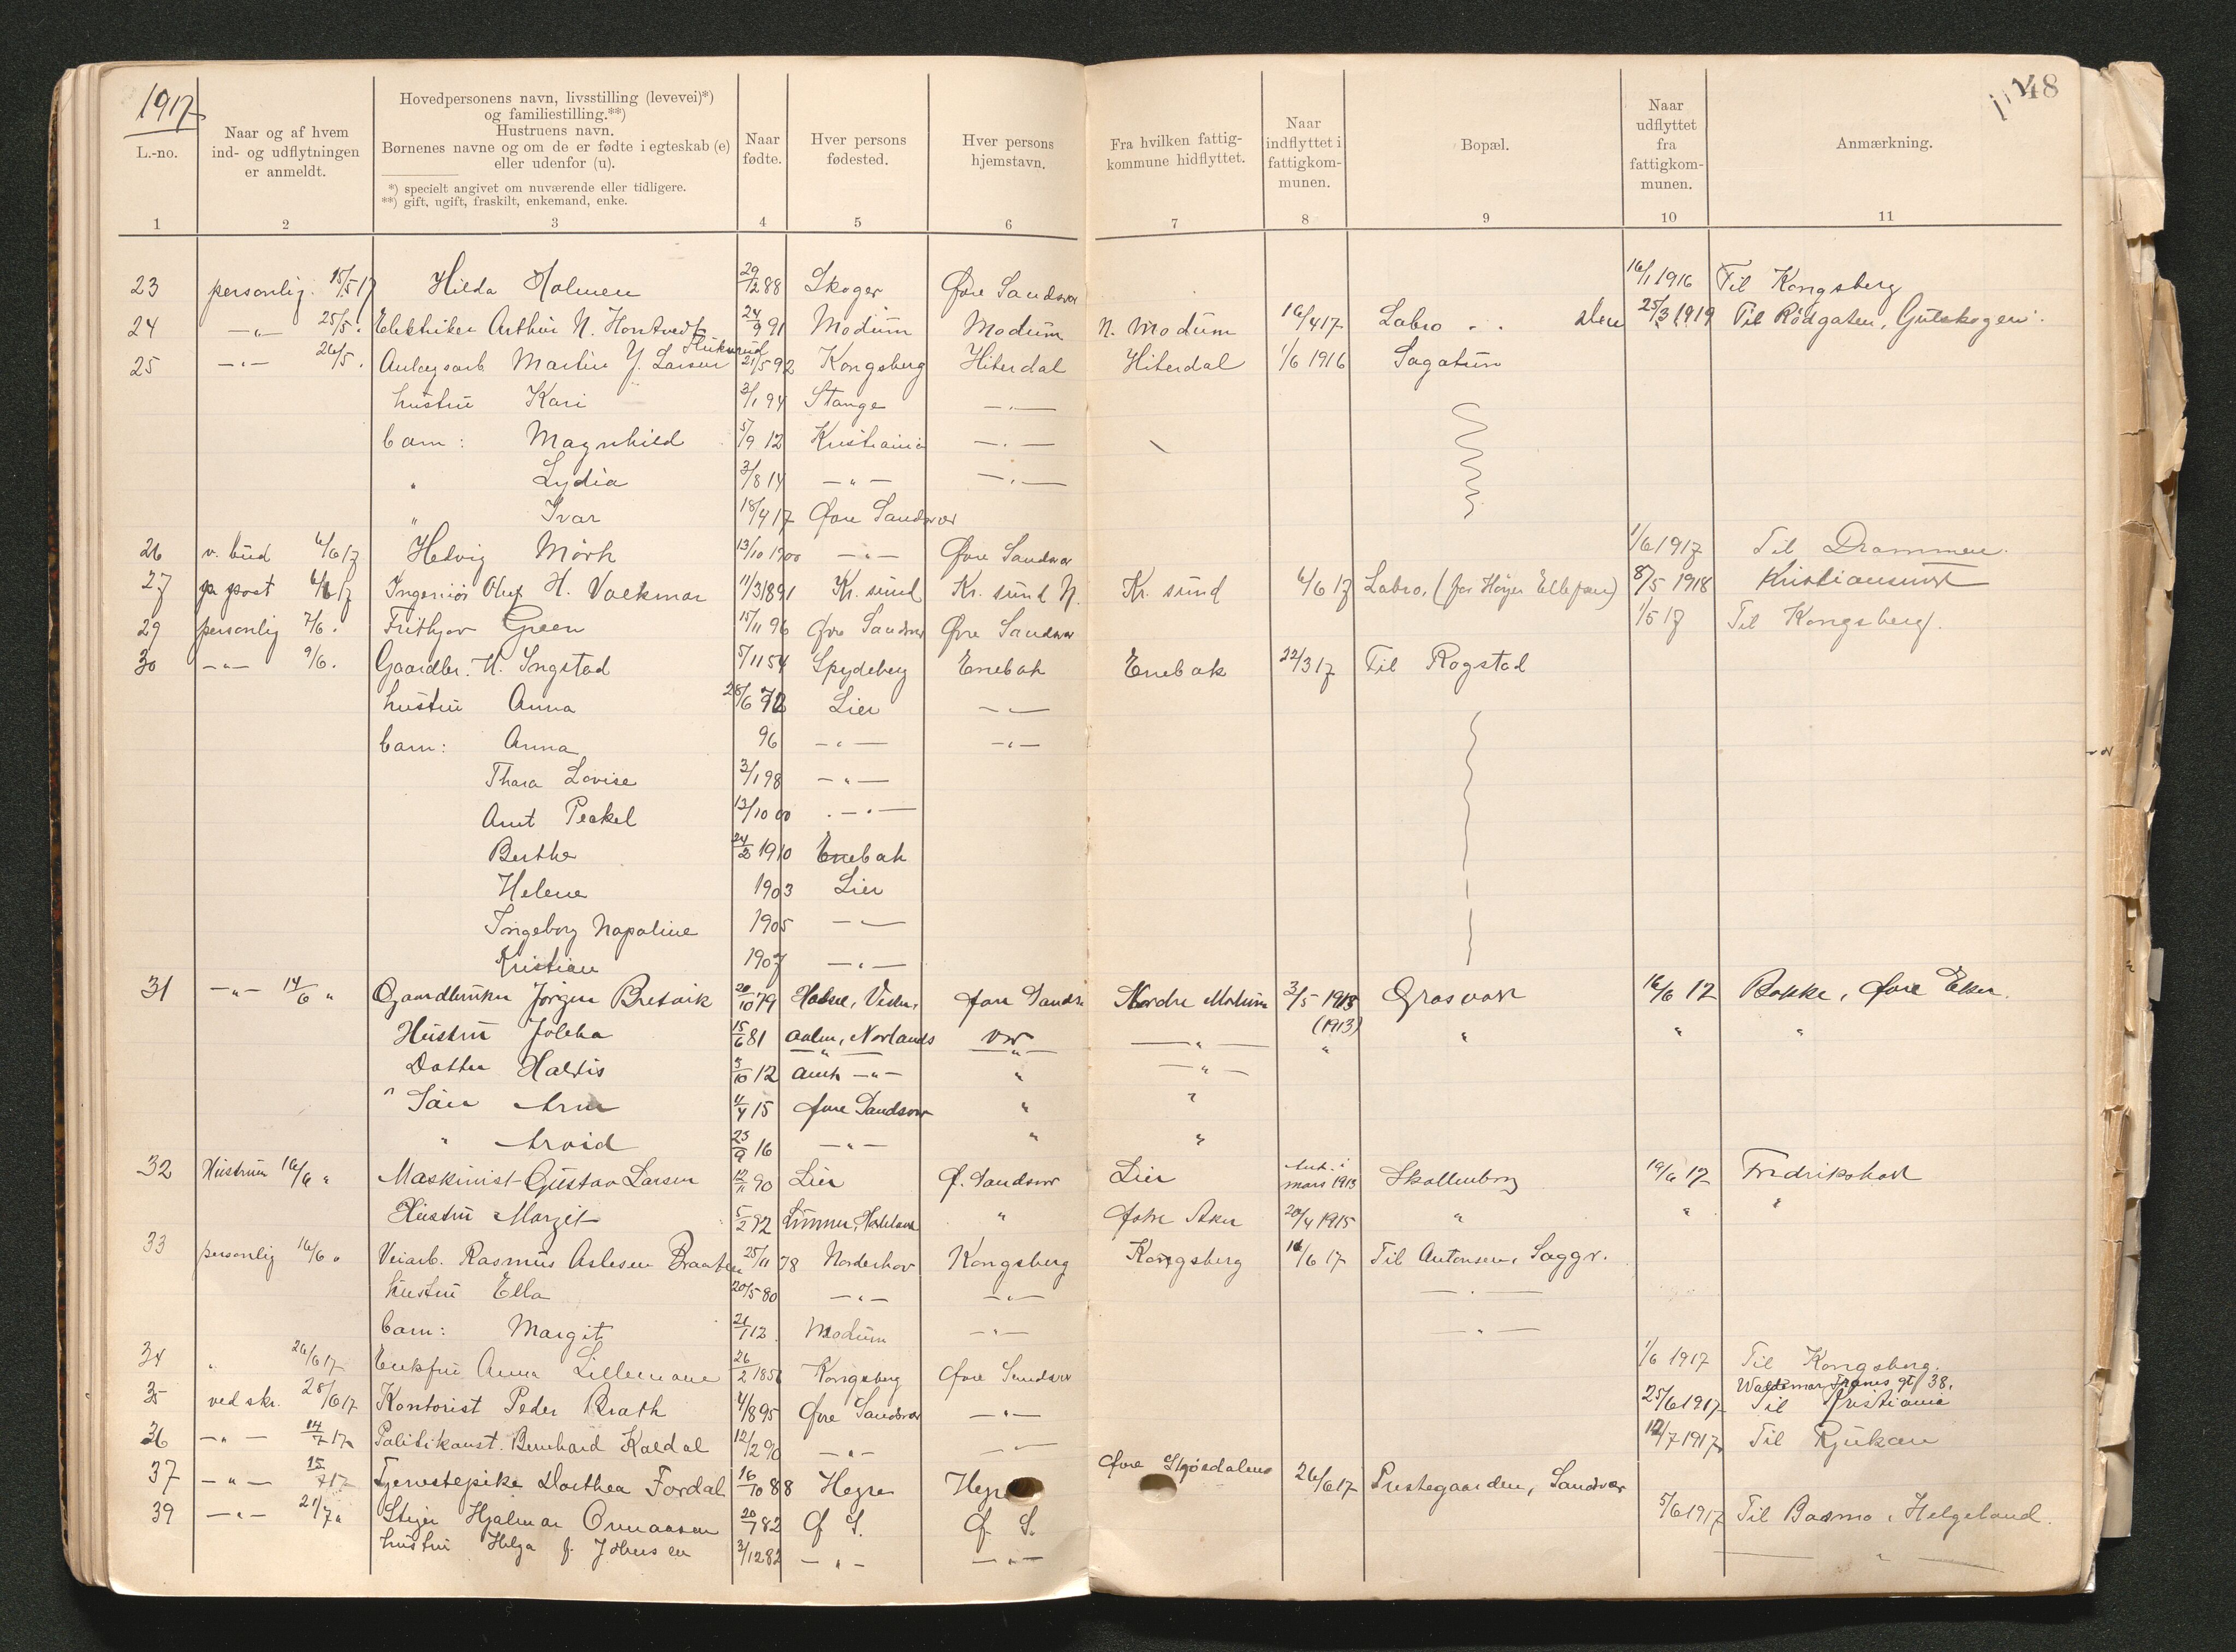 1917
48
L.-no.
Naar og af hvem
ind- og udflytningen
er anmeldt.
Hovedpersonens navn, livsstilling (levevei)*)
og familiestilling.**)
Hustruens navn.
Børnenes navne og om de er fødte i egteskab (e)
eller udenfor (u).
*) specielt angivet om nuværende eller tidligere.
**) gift, ugift, fraskilt, enkemand, enke.
Naar
fødte.
Hver persons
fødested.
Hver persons
hjemstavn.
Fra hvilken fattig-
kommune hidflyttet.
Naar
indflyttet i
fattigkom-
munen.
Bopæl.
Naar
udflyttet
fra
fattigkom-
munen.
Anmærkning.
1 2 3 4 5 6 7 8 9 10 11
23 personlig 15/5 17 Hilda Holmen 29/12 88 Skoger Øvre Sandsvær 16/1 1916 Til Kongsberg
24 -"- 25/5. Elektriker Arthur N. Hontvedt 24/9 91 Modum Modum N. Modum 16/4 17 Labro 25/3 1919 Til Rødgaten, Gulskogen.
25 -"- 26/5. Anlægsarb Martin Y. Larsen 21/5 92 Kongsberg Hiterdal Hiterdal 1/6 1916 Sagatun
hustru Kari 3/1 94 Stange -"-
barn: Magnhild 5/9 12 Kristiania -"-
" Lydia 3/8 14 -"- -"-
" Ivar 18/4 17 Øvre Sandsvær
26 v. bud 6/6 17 Helvig Mörk 13/10 1900 -"- Øvre Sandsvær 1/6 1917 Til Drammen.
27 pr post 6/6 17 Ingeniör Oluf H. Volkmar 11/3 1891 Kr. sund Kr. sund N. Kr. sund 6/6 17 Labro. (for Höyer Ellefsen) 8/5 1918 Kristiansund
29 personlig 7/6. Frithjov Green 15/11 96 Øvre Sandsvær Øvre Sandsvær 1/5 17 Til Kongsberg.
30 -"- 9/6. Gaardbr. K. Yngstad 5/11 54 Spydeberg Enebak Enebak 22/3 17 Til Rogstad
hustru Anna 28/6 72 Lier -"-
barn: Anna 96 -"- -"-
Thara Lovise 3/1 98 -"-
Amt Peckel 13/10 00 -"-
Berthe 24/2 1910 Enebak
Helene 1903 Lier
Ingeborg Napoline 1905 -"-
Kristian 1907 -"-
31 -"- 14/6 " Gaardbruker Jörgen Bretvik 20/10 79 Hadsel, Øvre Sandsvær Nordre Modum 3/5 1913 16/6 17 Bakke, Øvre Eker.
Hustru 15/6 81 Norlands -"- (1913) " " "
Datter Haldis 5/10 12 amt -"- " -"-
" Sön Arne 11/4 15 Øvre Sandsvær " "
" Arvid 23/9 16 -"- " "
32 Hustruen 16/6 " Maskinist Gustav Larsen 12/11 90 Lier Ø. Sandsvær Lier mars 1913 Skollenborg 19/6 17 Fredrikshald
Hustru Margit 5/2 92 Lunner, Hadeland " Østre Aker 20/4 1915 " " "
33 personlig 16/6 " Veiarb. Rasmus Aslesen Braaten 25/11 78 Norderhov Kongsberg Kongsberg 16/6 17 Til Antonsen, Saggr.
hustru Ella 20/5 80 -"- -"- -"-
barn: Margit 21/1 12 Modum -"- -"-
34 " 26/6 17 Enkefru Anna Lillemoane 26/2 1856 Kongsberg Øvre Sandsvær 1/6 1917 Til Kongsberg.
Waldemar Tranes gt. 38.
35 ved skr. 28/6 17 Kontorist Peder Brath 4/8 95 Øvre Sandsvær -"- 25/6 1917 Til Kristiania
36 -"- 14/7 17 Politikonst. Bernhard Kaldal 12/2 90 -"- -"- 12/7 1917 Til Rjukan
37 -"- 15/7 17 Tjenestepike Dorthea Fordal 16/10 88 Hegre Hegre Øvre Stjørdalen 26/6 17 Prestegaarden, Sandsvær
39 -"- 21/7 " Stiger Hjalmar Ormaasen 20/7 82 Ø S. Ø. S. 5/6 1917 Til Basmo, Helgeland.
hustru Helga f. Johnsen 3/12 82 -"- -"- -"-